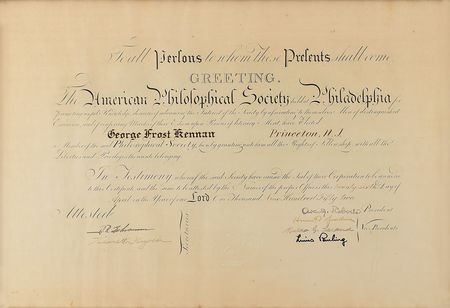 To all Persons to whom these Presents shall come
GREETING.
The American Philosophical Society held at Philadelphia for
promoting useful Knowledge, desirous of advancing the Interest of the Society by associating to themselves Men of distinguished
Eminence, and of conferring Marks of their Esteem upon Persons of literary Merit, have Elected
George Frost Kennan Princeton, N.J.
a Member of the said Philosophical Society, hereby granting unto him all the Rights of Fellowship, with all the
Liberties and Privileges thereunto belonging.
In Testimony whereof the said Society have caused the Seal of their Corporation to be annexed
to this Certificate, and the same to be attested by the Names of the proper Officers this Twenty
April in the Year of our Lord One Thousand Nine Hundred Fifty two
Attested:
Secretaries
President
Vice Presidents
Linus Pauling